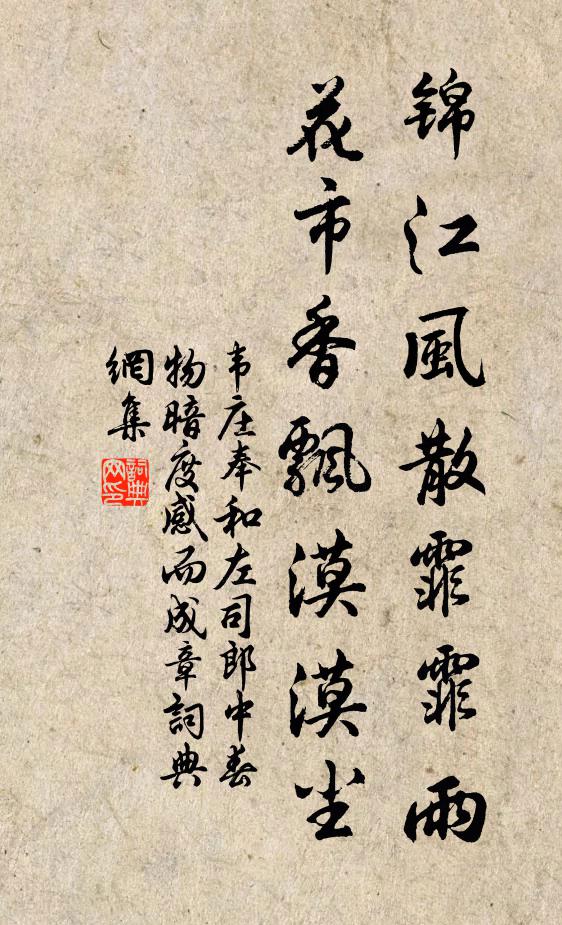 錦江風散霏霏雨
花市香飄漠漠尘
韦庄奉和左司郎中春
物暗度感而成章詞典
網集
詞典
网印